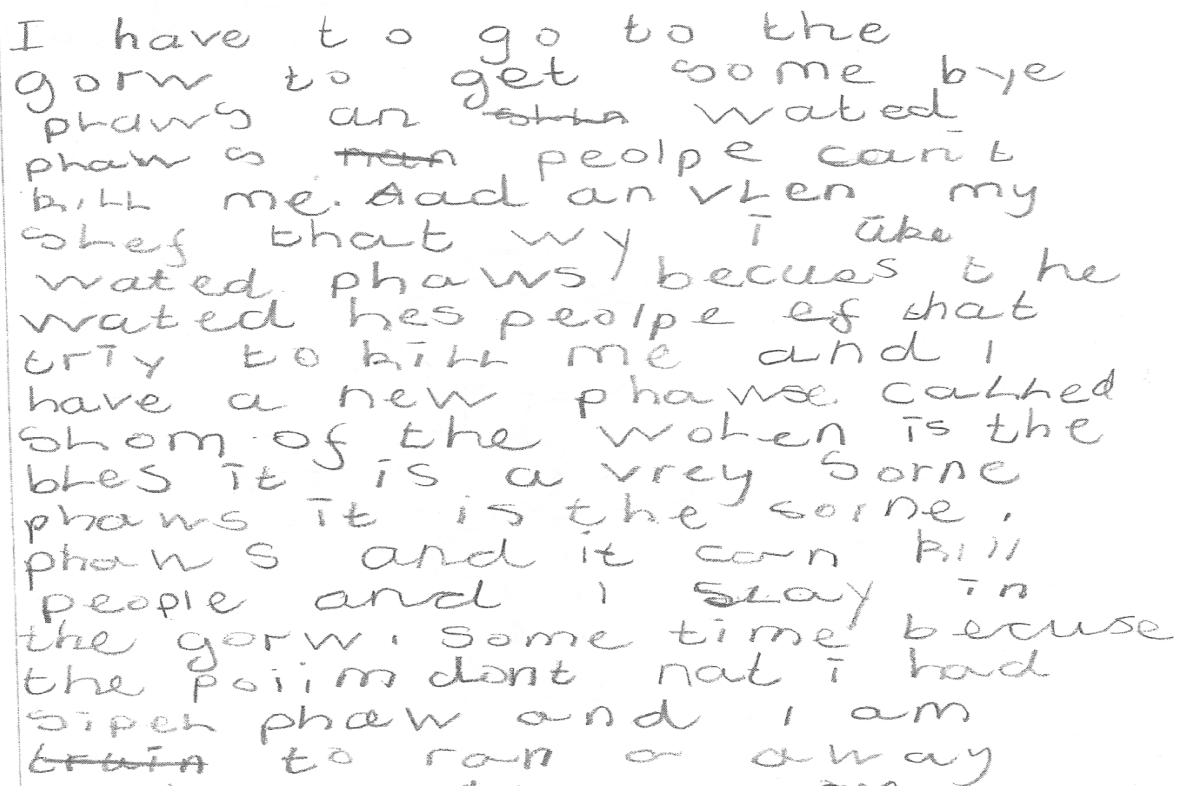 I have to go to the
gorw to get some bye
phaws an wated
phaws peolpe can't
kill me. Aad an vLen my
shef that wy i like
wated phaws becues the
wated hes peolpe ef that
triy to kill me and I
have a new phawse caLLed
shom of the wohen is the
bLes it is a vrey sorne
phaws it is the sorne.
phaws and it can kill
people and I stay in
the gorw. some time becuse
the poiim dont nat i had
sipeh phaw and I am
to ran a away